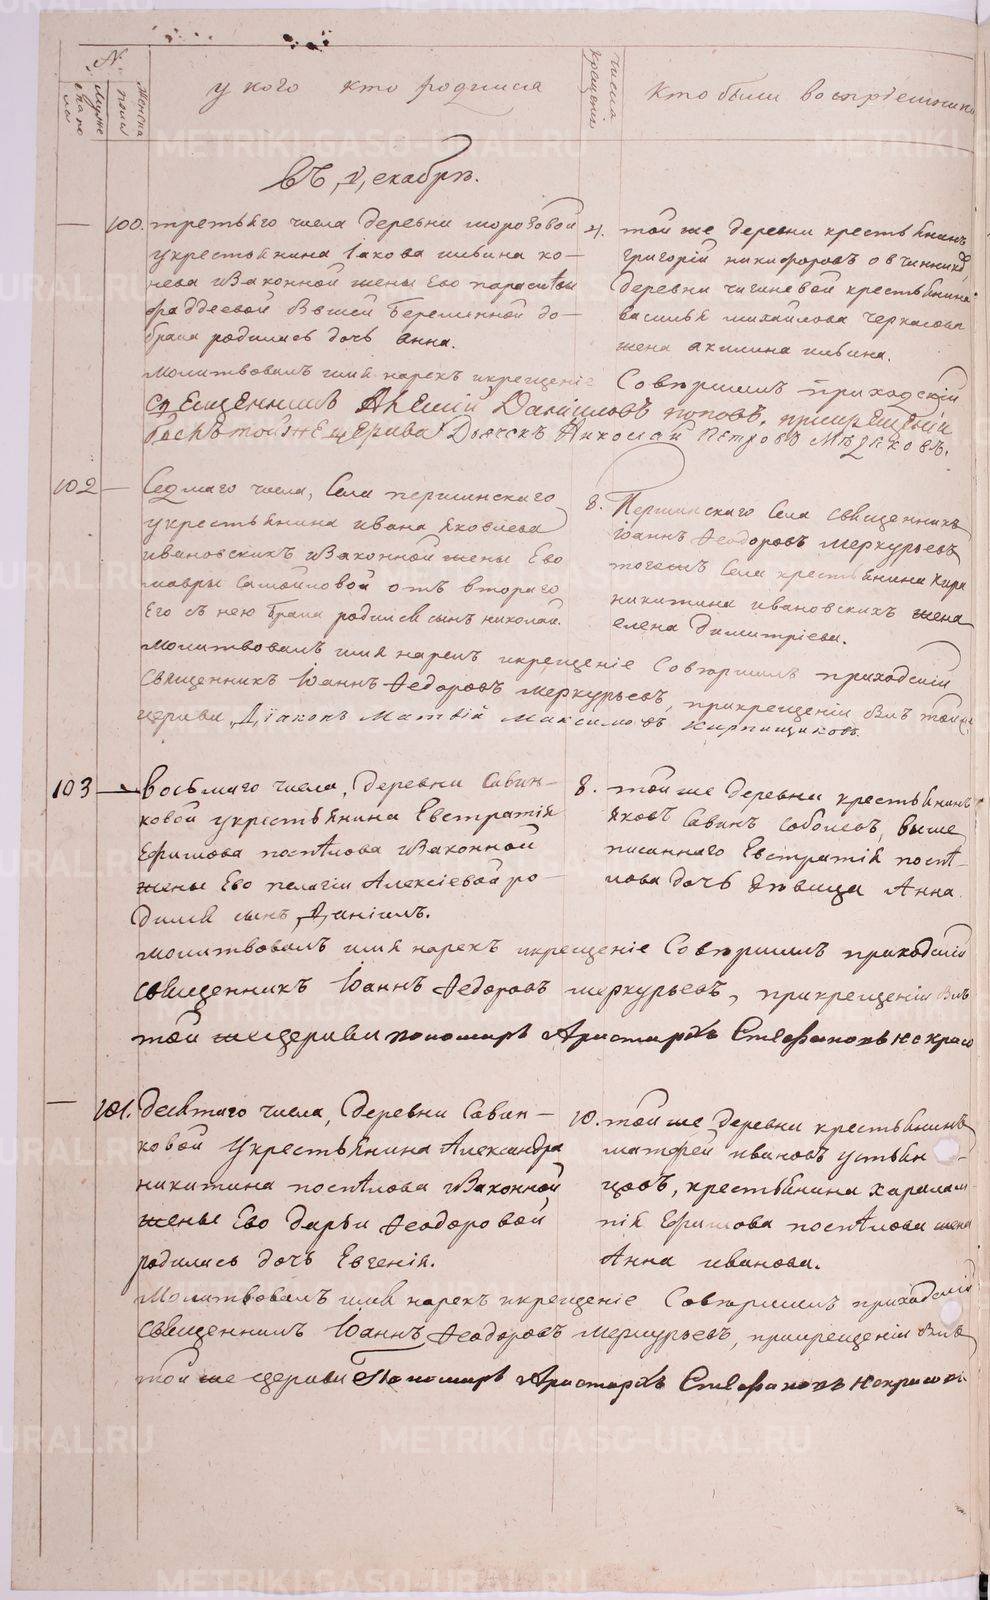 №
мужеска полу
женска
у кого кто родился
числа крещенія
кто были воспріемники
въ Декабрѣ.
100. третьяго числа деревни морозовой
у крестьянина Іакова ильина ко-
нева и законной жены Его параскевы
фаддеевой Вшей беременной до
брака родилась дочь анна.
4. той же деревни крестьянинъ
григорій никифоровъ овчинников
деревни чигиневой крестьянина
василья михайлова черкасова
жена акилина ильина.
молитвовалъ имя нарекъ и крещеніе Совершилъ приходскій
Священникъ Алексій Даниловъ поповъ, при крещеніи
былъ той же церкви Дьячекъ Николай Петровъ Мѣзяковъ.
102 Седмаго числа, Села першинскаго
у крестьянина ивана яковлева
ивановскихъ и законной жены Его
мавры самойловой отъ втораго
Его съ нею брака родился сынъ николай.
8. Першинскаго Села священникъ
іоаннъ Феодоровъ меркурьевъ
тогожъ Села крестьянина кира
никитина ивановскихъ жена
елена Димитріева.
молитвовалъ имя нарекъ и крещеніе Совершилъ приходскій
Священникъ Іоаннъ Федоровъ меркурьевъ, при крещеніи былъ той же
церкви Діаконъ Матвій Максимовъ Кирпищиковъ.
103 восьмаго числа, Деревни Савин-
ковой у крестьянина Евстратія
Ефимова поспѣлова и законной
жены Его пелагіи Алексіевой ро-
дился сынъ Даніилъ.
8. той же деревни крестьянинъ
яковъ Савинъ соболевъ, выше
писаннаго Евстратія поспѣ-
лова дочь дѣвица Анна
молитвовалъ имя нарекъ и крещеніе Совершилъ приходскій
священникъ Іоаннъ Федоровъ меркурьевъ, при крещеніи былъ
той же церкви пономарь Аристархъ Стефановъ Некрасо
101. десятаго числа, Деревни Савин-
ковой у крестьянина Александра
никитина поспѣлова и законной
жены Его дарьи Феодоровой
родилась дочь Евгенія.
10. той же деревни крестьянинъ
матфей ивановъ устьян-
цовъ, крестьянина харалам-
пія Ефимова поспѣлова жена
Анна иванова.
Молитвовалъ имя нарекъ и крещеніе Совершилъ приходскій
Священникъ Іоаннъ Феодоровъ Меркурьевъ, при крещеніи былъ
той же церкви Пономарь Аристархъ Стефановъ Некрасовъ
METRIKI.GASO-URAL.RU